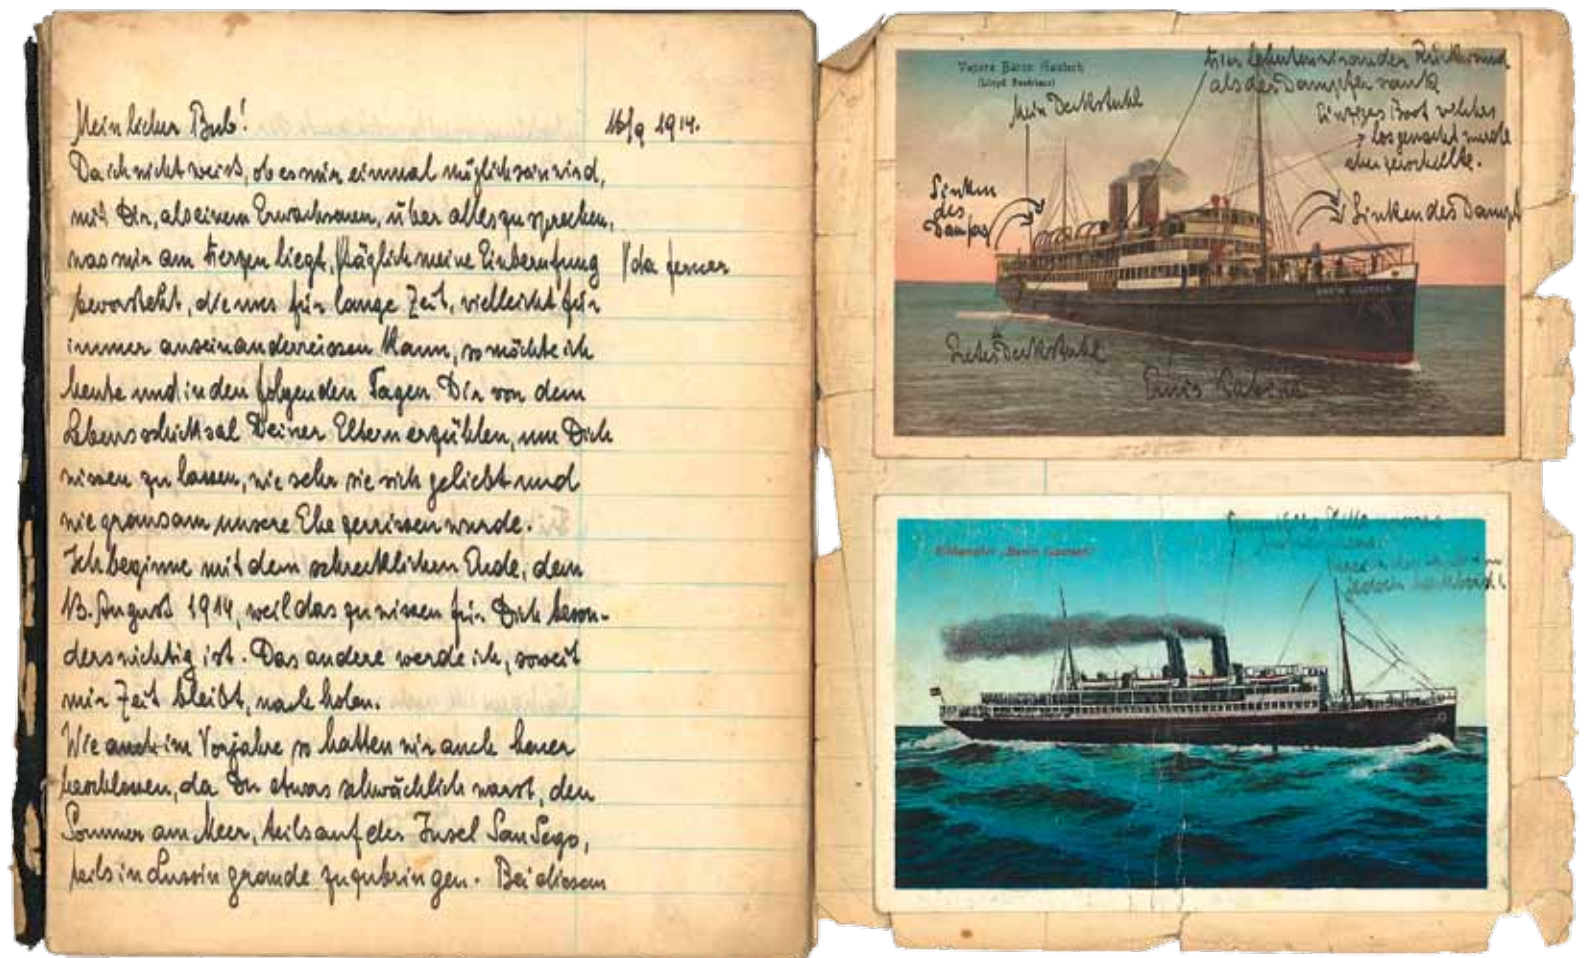 Mein lieber Bub! 16/9 1914.
Da ich nicht weiß, ob es mir einmal möglich sein wird,
mit Dir, als einem Erwachsenen, über alles zu sprechen,
was mir am Herzen liegt, täglich meine Einberufung
da ferner
bevorsteht, die uns für lange Zeit, vielleicht für
immer auseinanderreissen kann, so möchte ich
heute und in den folgenden Tagen Dir von dem
Lebensschicksal Deiner Eltern erzählen, um Dich
wissen zu lassen, wie sehr sie sich geliebt und
wie grausam unsere Ehe zerrissen wurde.
Ich beginne mit dem schrecklichen Ende, dem
13. August 1914, weil das zu wissen für Dich beson-
ders wichtig ist. Das andere werde ich, soweit
mir Zeit bleibt, nach holen.
Wie auch im Vorjahre so hatten wir auch heuer
beschlossen, da Du etwas schwächlich warst, den
Sommer am Meer, teils auf der Insel San Sego,
teils in Lussin grande zuzubringen. Bei diesem
Vapore Baron Gautsch
(Lloyd Austriaco)
Hier lehnten wir an der Rückwand
als der Dampfer sank
Mein Deckstuhl
Einziges Boot welches
losgemacht wurde
aber zerschellte.
Sinken
des
Dampfers
Sinken des Dampf
BARON GAUTSCH
Deckstuhl
Kabine
"Baron Gautsch"